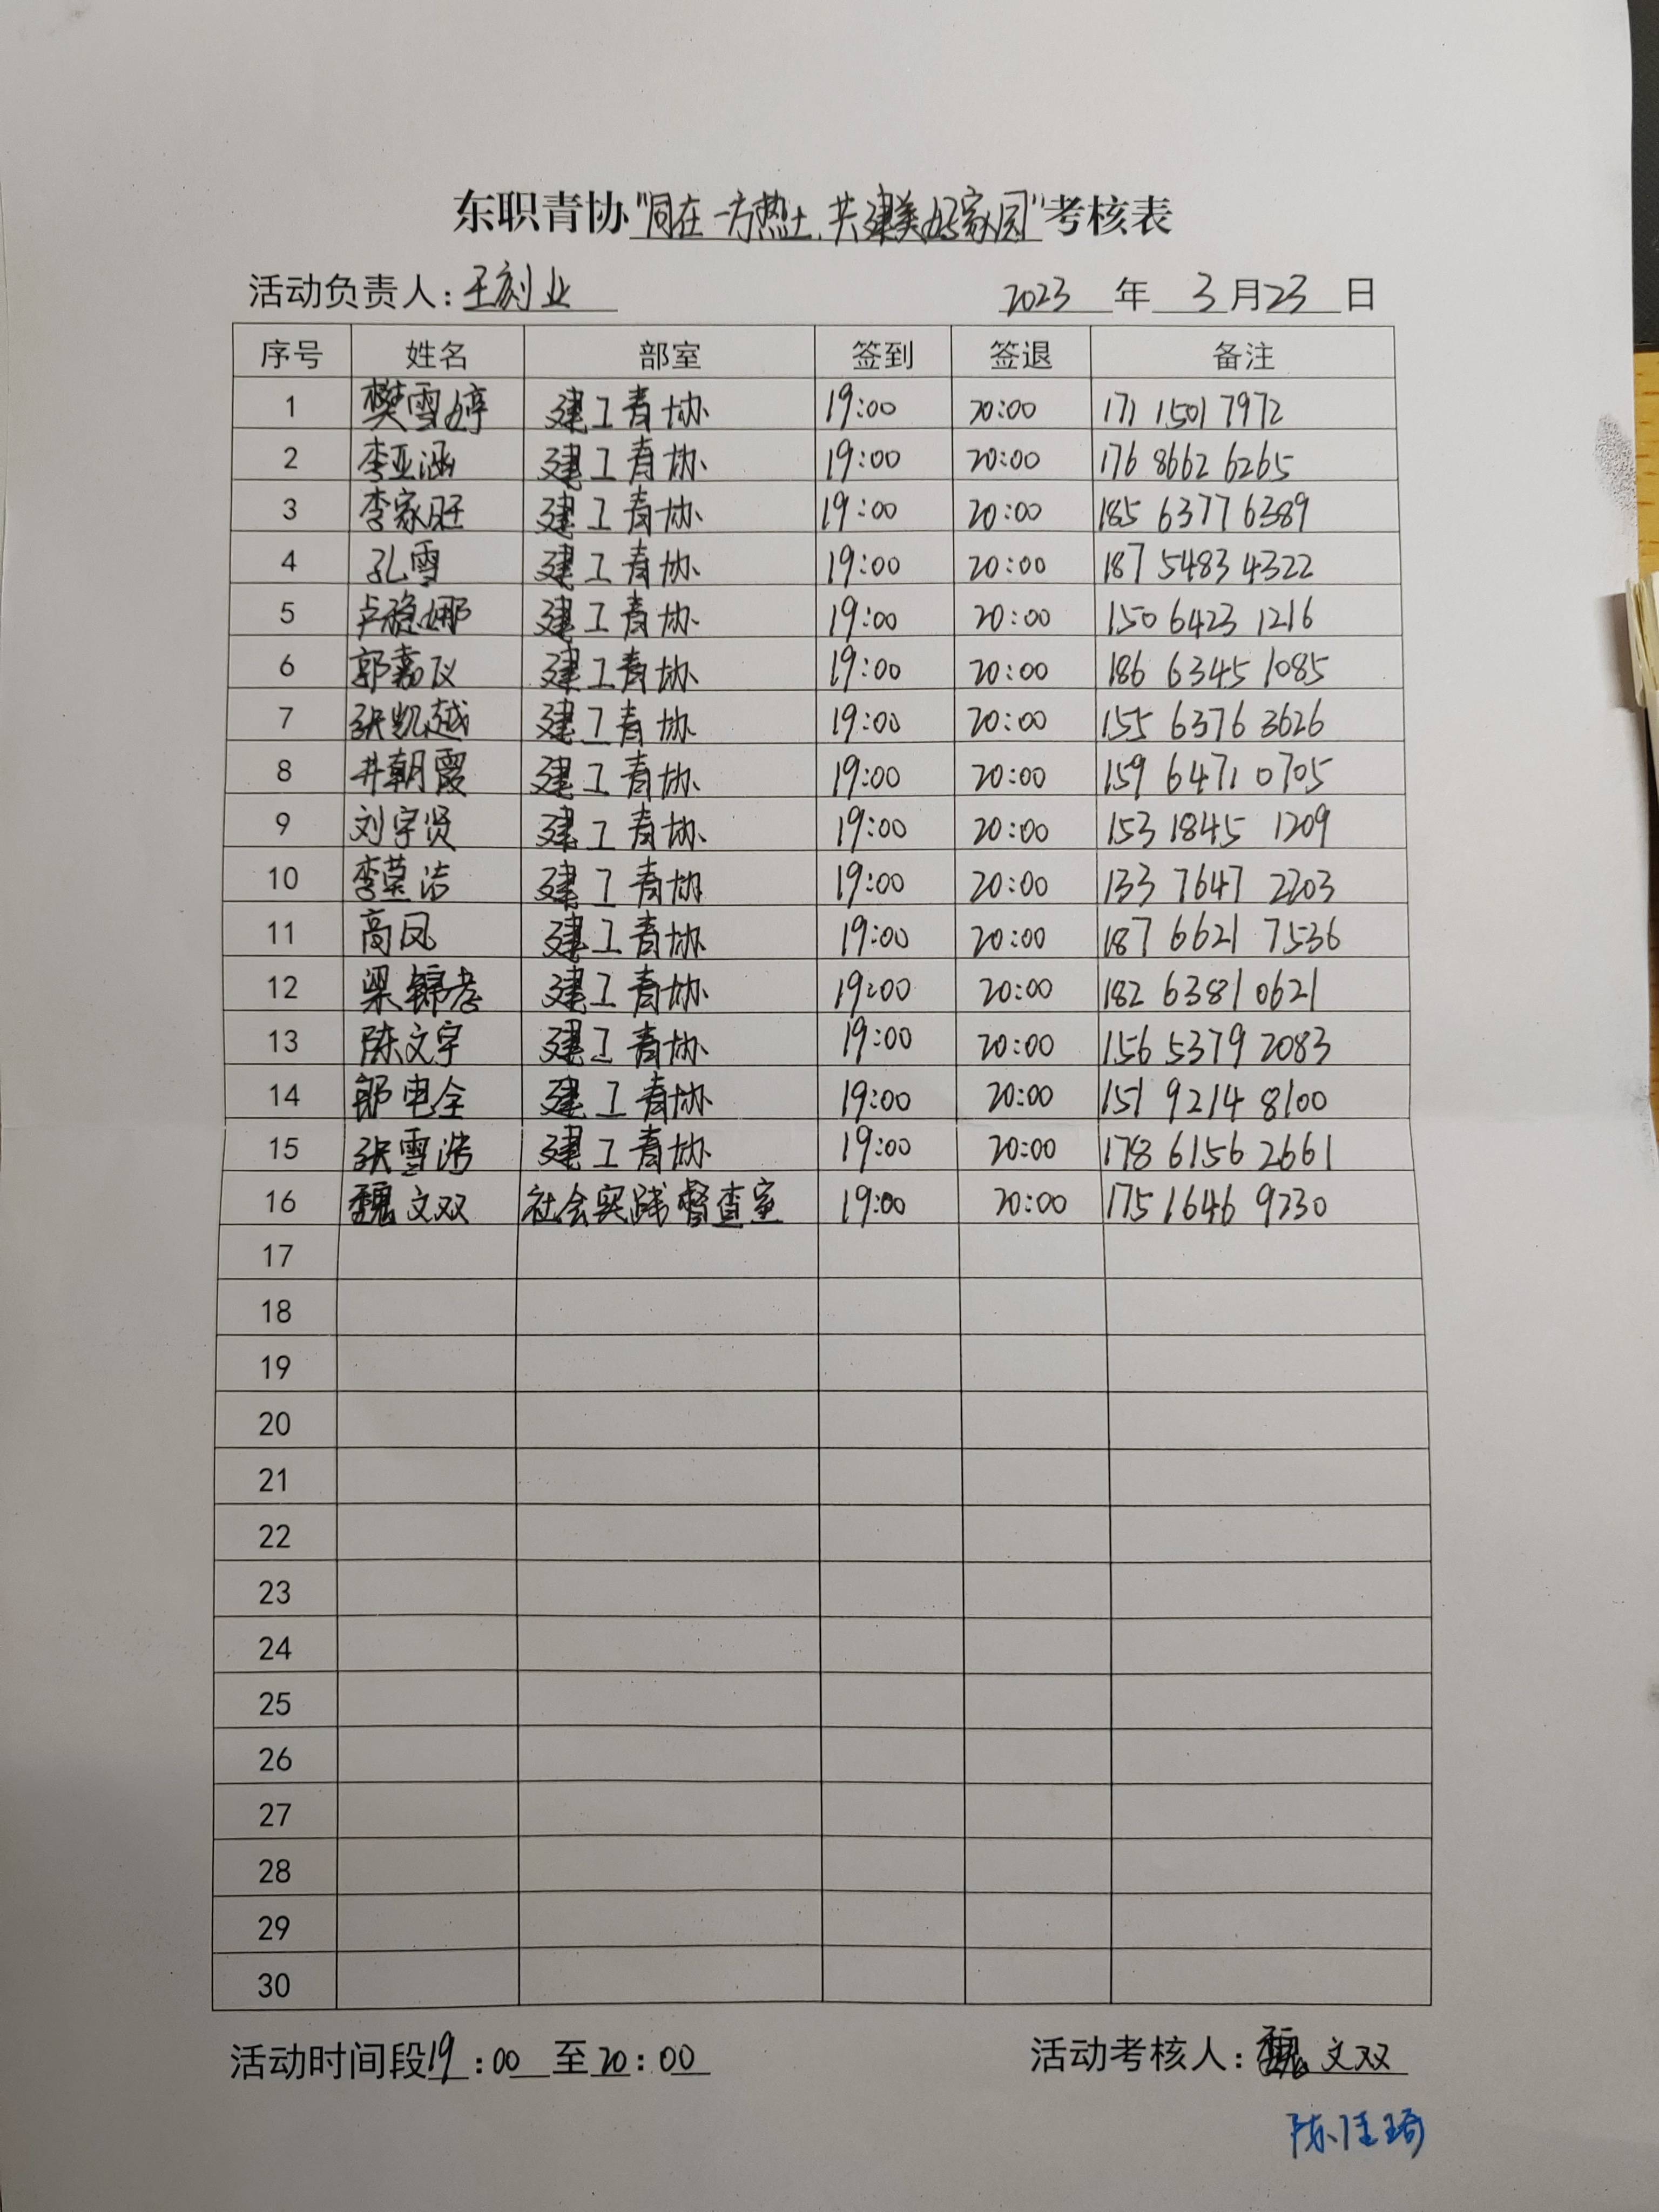 东职青协"同在一方热土,共建美好家园"考核表
活动负责人:王刻业 2023年3月23日
序号 姓名 部室 签到 签退 备注
1 樊雪婷 建工青协 19:00 20:00 171 1501 7972
2 李亚涵 建工青协 19:00 20:00 176 8662 6265
3 李家旺 建工青协 19:00 20:00 185 6377 6389
4 孔雪 建工青协 19:00 20:00 187 5483 4322
5 卢稳娜 建工青协 19:00 20:00 150 6423 1216
6 郭嘉仪 建工青协 19:00 20:00 186 6345 1085
7 张凯越 建工青协 19:00 20:00 155 6376 3626
8 井朝霞 建工青协 19:00 20:00 159 6471 0705
9 刘宇贤 建工青协 19:00 20:00 153 1845 1209
10 建工青协 19:00 20:00 133 7647 2203
11 高凤 建工青协 19:00 20:00 187 6621 7536
12 梁锦孝 建工青协 19:00 20:00 182 6381 0621
13 陈文宇 建工青协 19:00 20:00 156 5379 2083
14 建工青协 19:00 20:00 151 9214 8100
15 张雪涛 建工青协 19:00 20:00 178 6156 2661
16 魏文双 社会实践督查室 19:00 20:00 175 1646 9230
17
18
19
20
21
22
23
24
25
26
27
28
29
30
活动时间段19:00至20:00 活动考核人:魏文双
陈佳琦